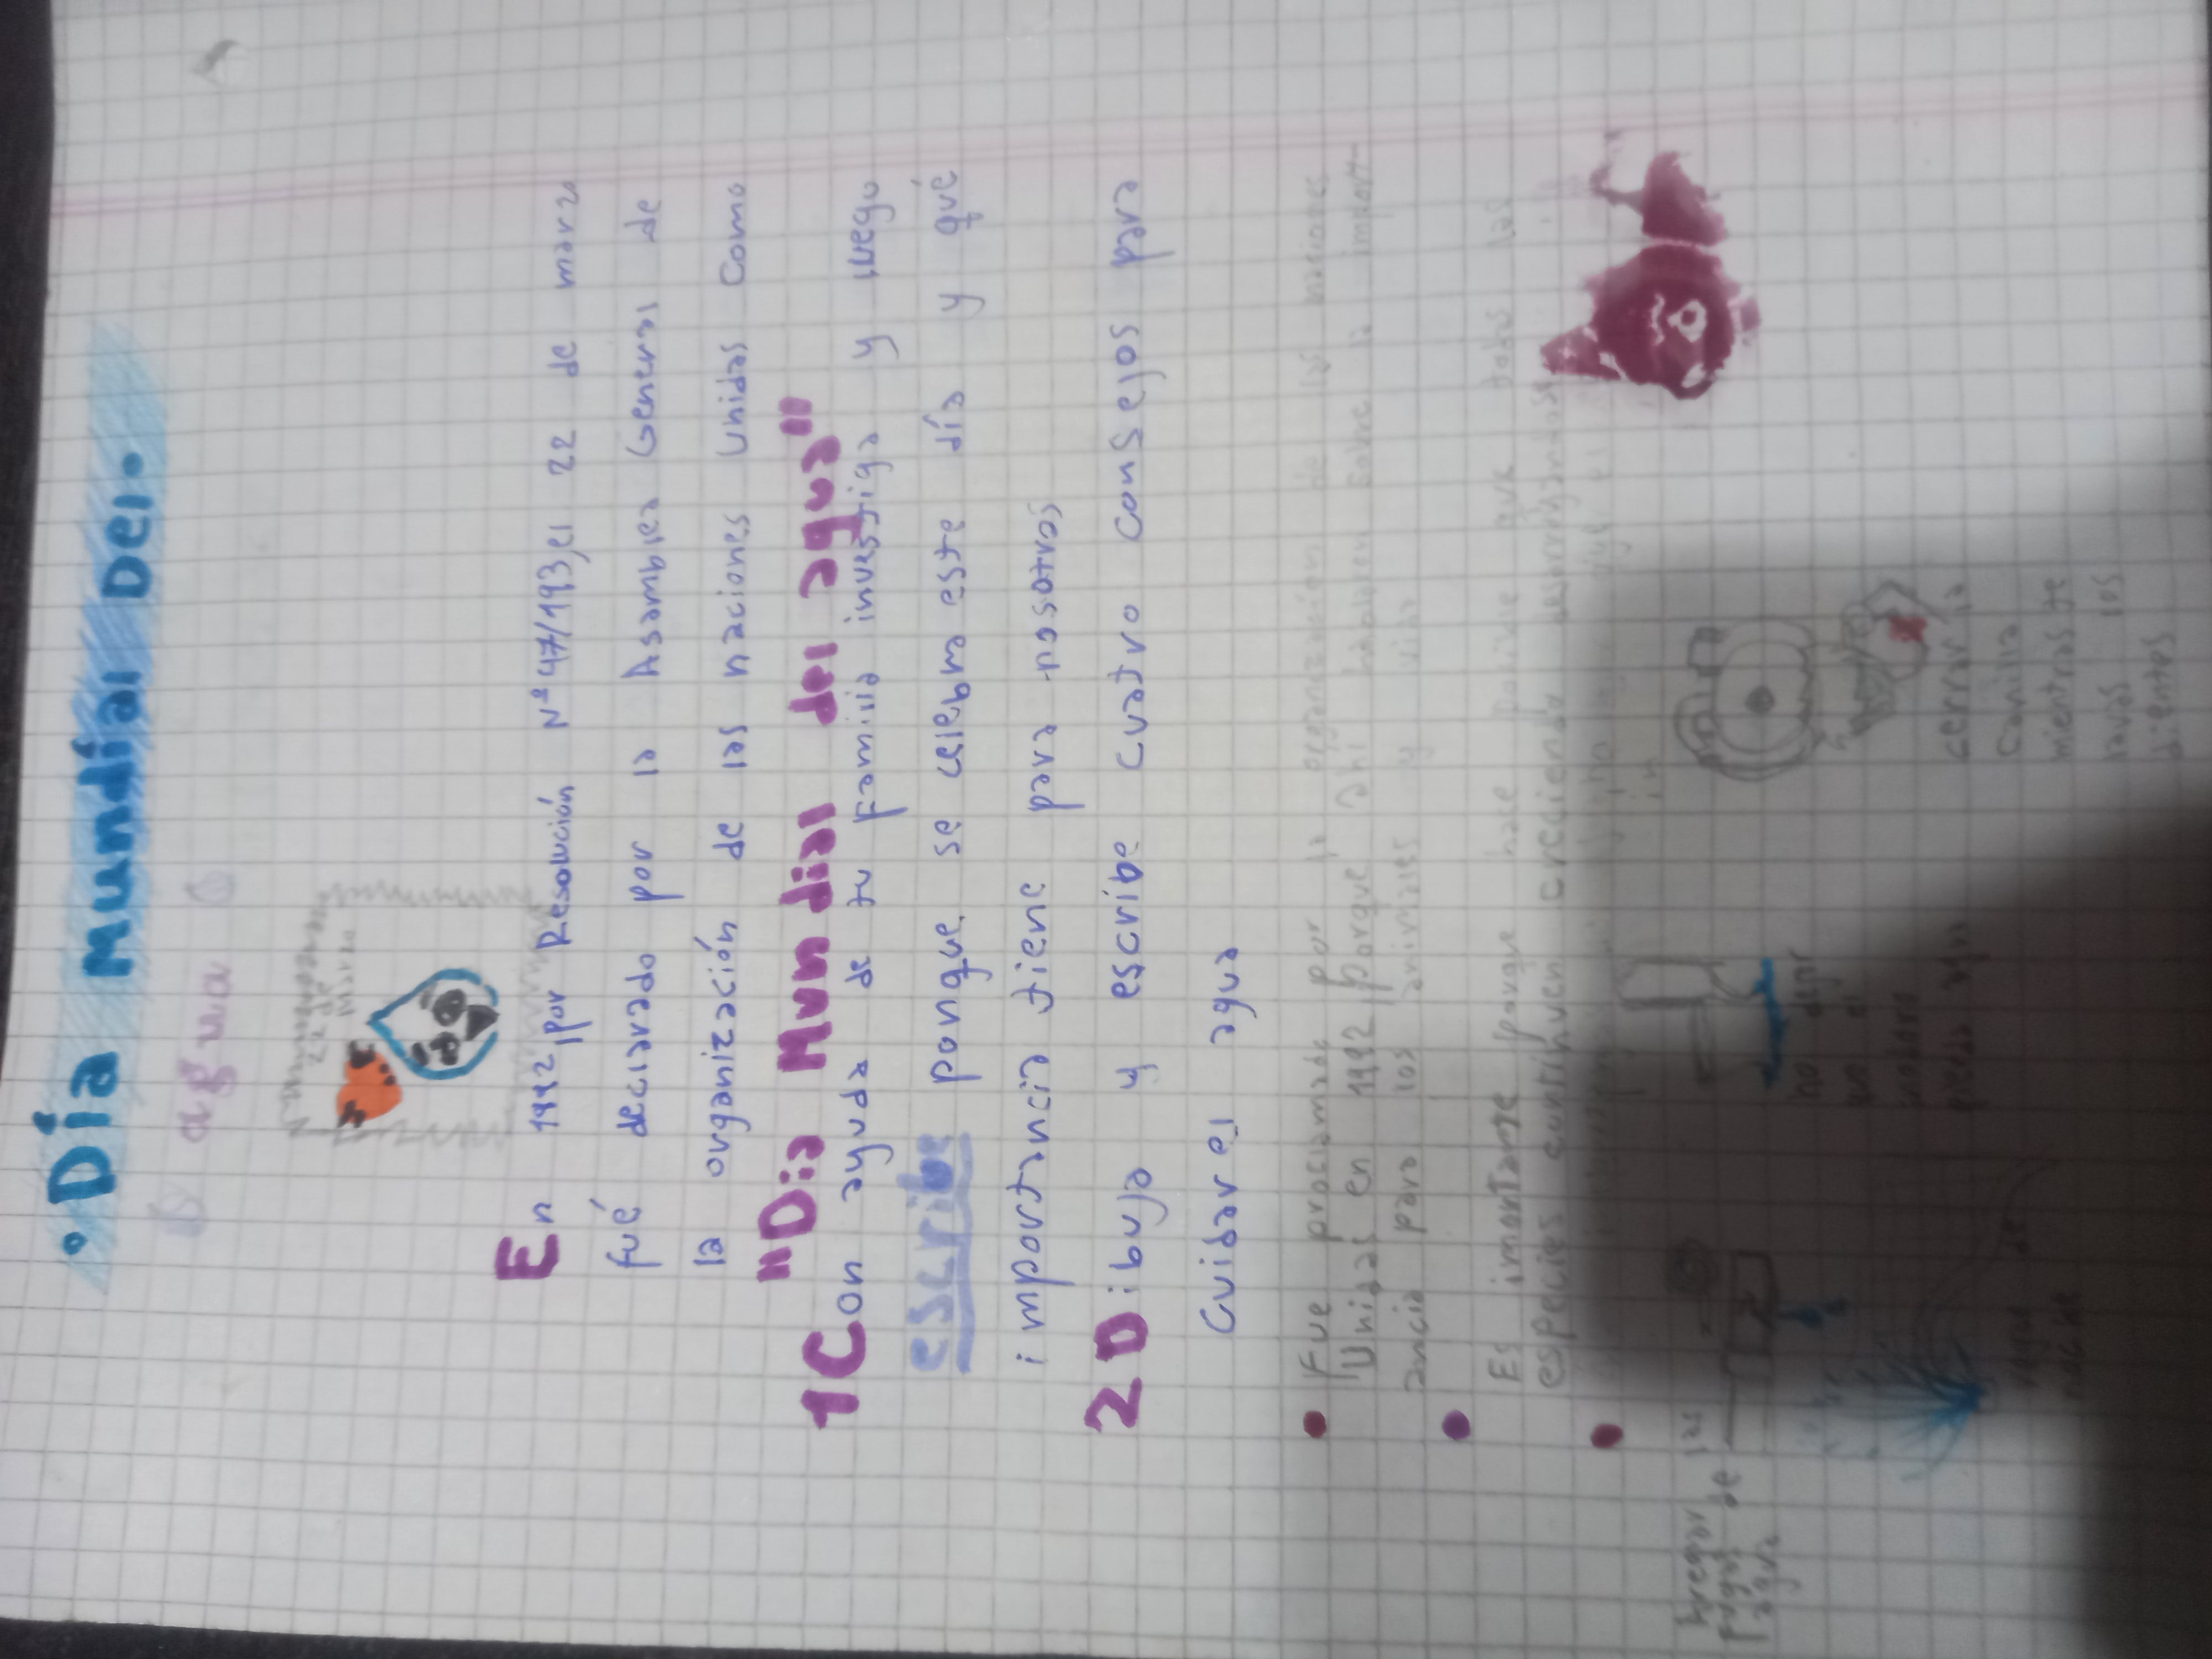 • Día Mundíal Del •
agua
22 de
Marzo
En 1992, por Resolución Nº 47/193, el 22 de marzo
fué declarado por la Asamblea General de
la organización de las naciones Unidas Como
"Dia Mundial del agua"
1 Con ayuda de tu Familia investiga y luego
escribe porque se celebra este día y qué
importancia tiene para nosotros
2 Dibuja y escribe cuatro consejos para
Cuidar el agua
• Fue proclamado por la organización de las naciones
Unidas en 1992 porque ahi hablaron sobre la import-
ancia para los animales y vida
• Es imortante porque hase posible que todas las
especies continuen creciendo desarroyandose
•
Arreglar las
fugas de
agua
regar de
noche
no dejar
en el
inodoro
cerrar la
canilla
mientras te
lavas los
dientes